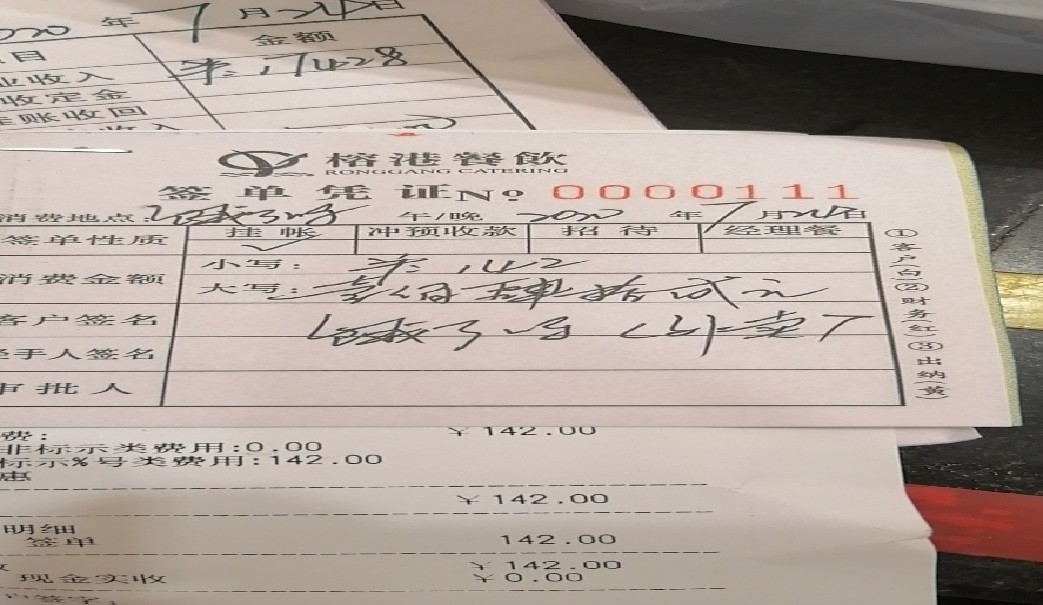 年7月 日
目 金额
业收入
收定金
挂账收回
榕港餐飲
RONGGANG CATERING
签单凭证No. 0000111
消费地点: 饿了吗 午/晚 2020年7月 日
签单性质 挂帐 冲预收款 招待 经理餐
✓
消费金额 小写: 142
大写: 壹佰肆拾贰元
客户签名 饿了吗(外卖)
经手人签名
审批人
①客户(白)②财务(红)③出纳(黄)
费: ¥142.00
非标示类费用:0.00
标示%号类费用:142.00
惠
¥142.00
明细
签单 142.00
¥142.00
现金实收 ¥0.00
户签字: